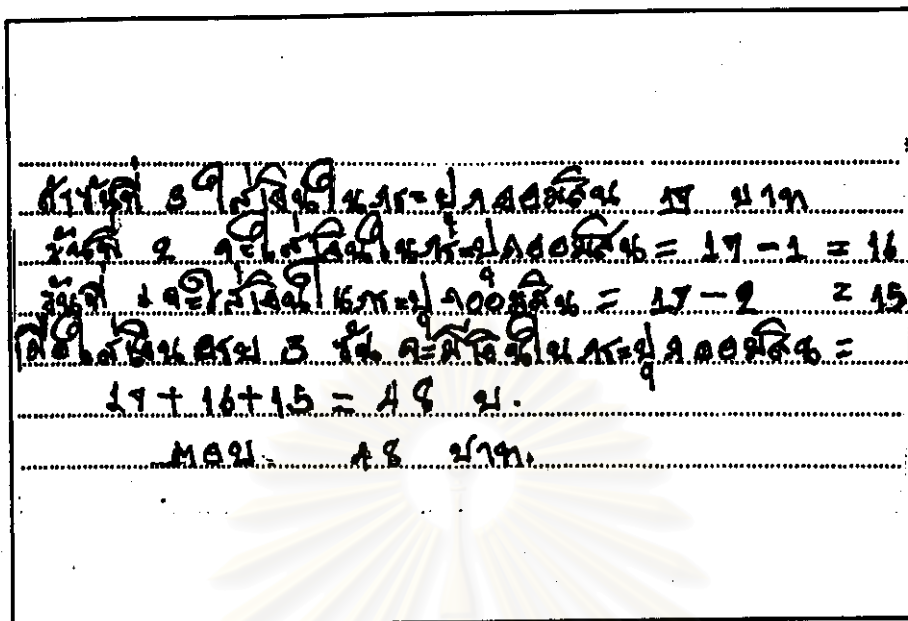 ถ้าวันที่ 3 ใส่เงินในกระปุกออมสิน 17 บาท
วันที่ 2 จะใส่เงินในกระปุกออมสิน = 17 - 1 = 16
วันที่ 1 จะใส่เงินในกระปุกออมสิน = 17 - 2 = 15
เมื่อใส่เงินครบ 3 วัน จะมีเงินในกระปุกออมสิน =
17 + 16 + 15 = 48 บ.
ตอบ 48 บาท.